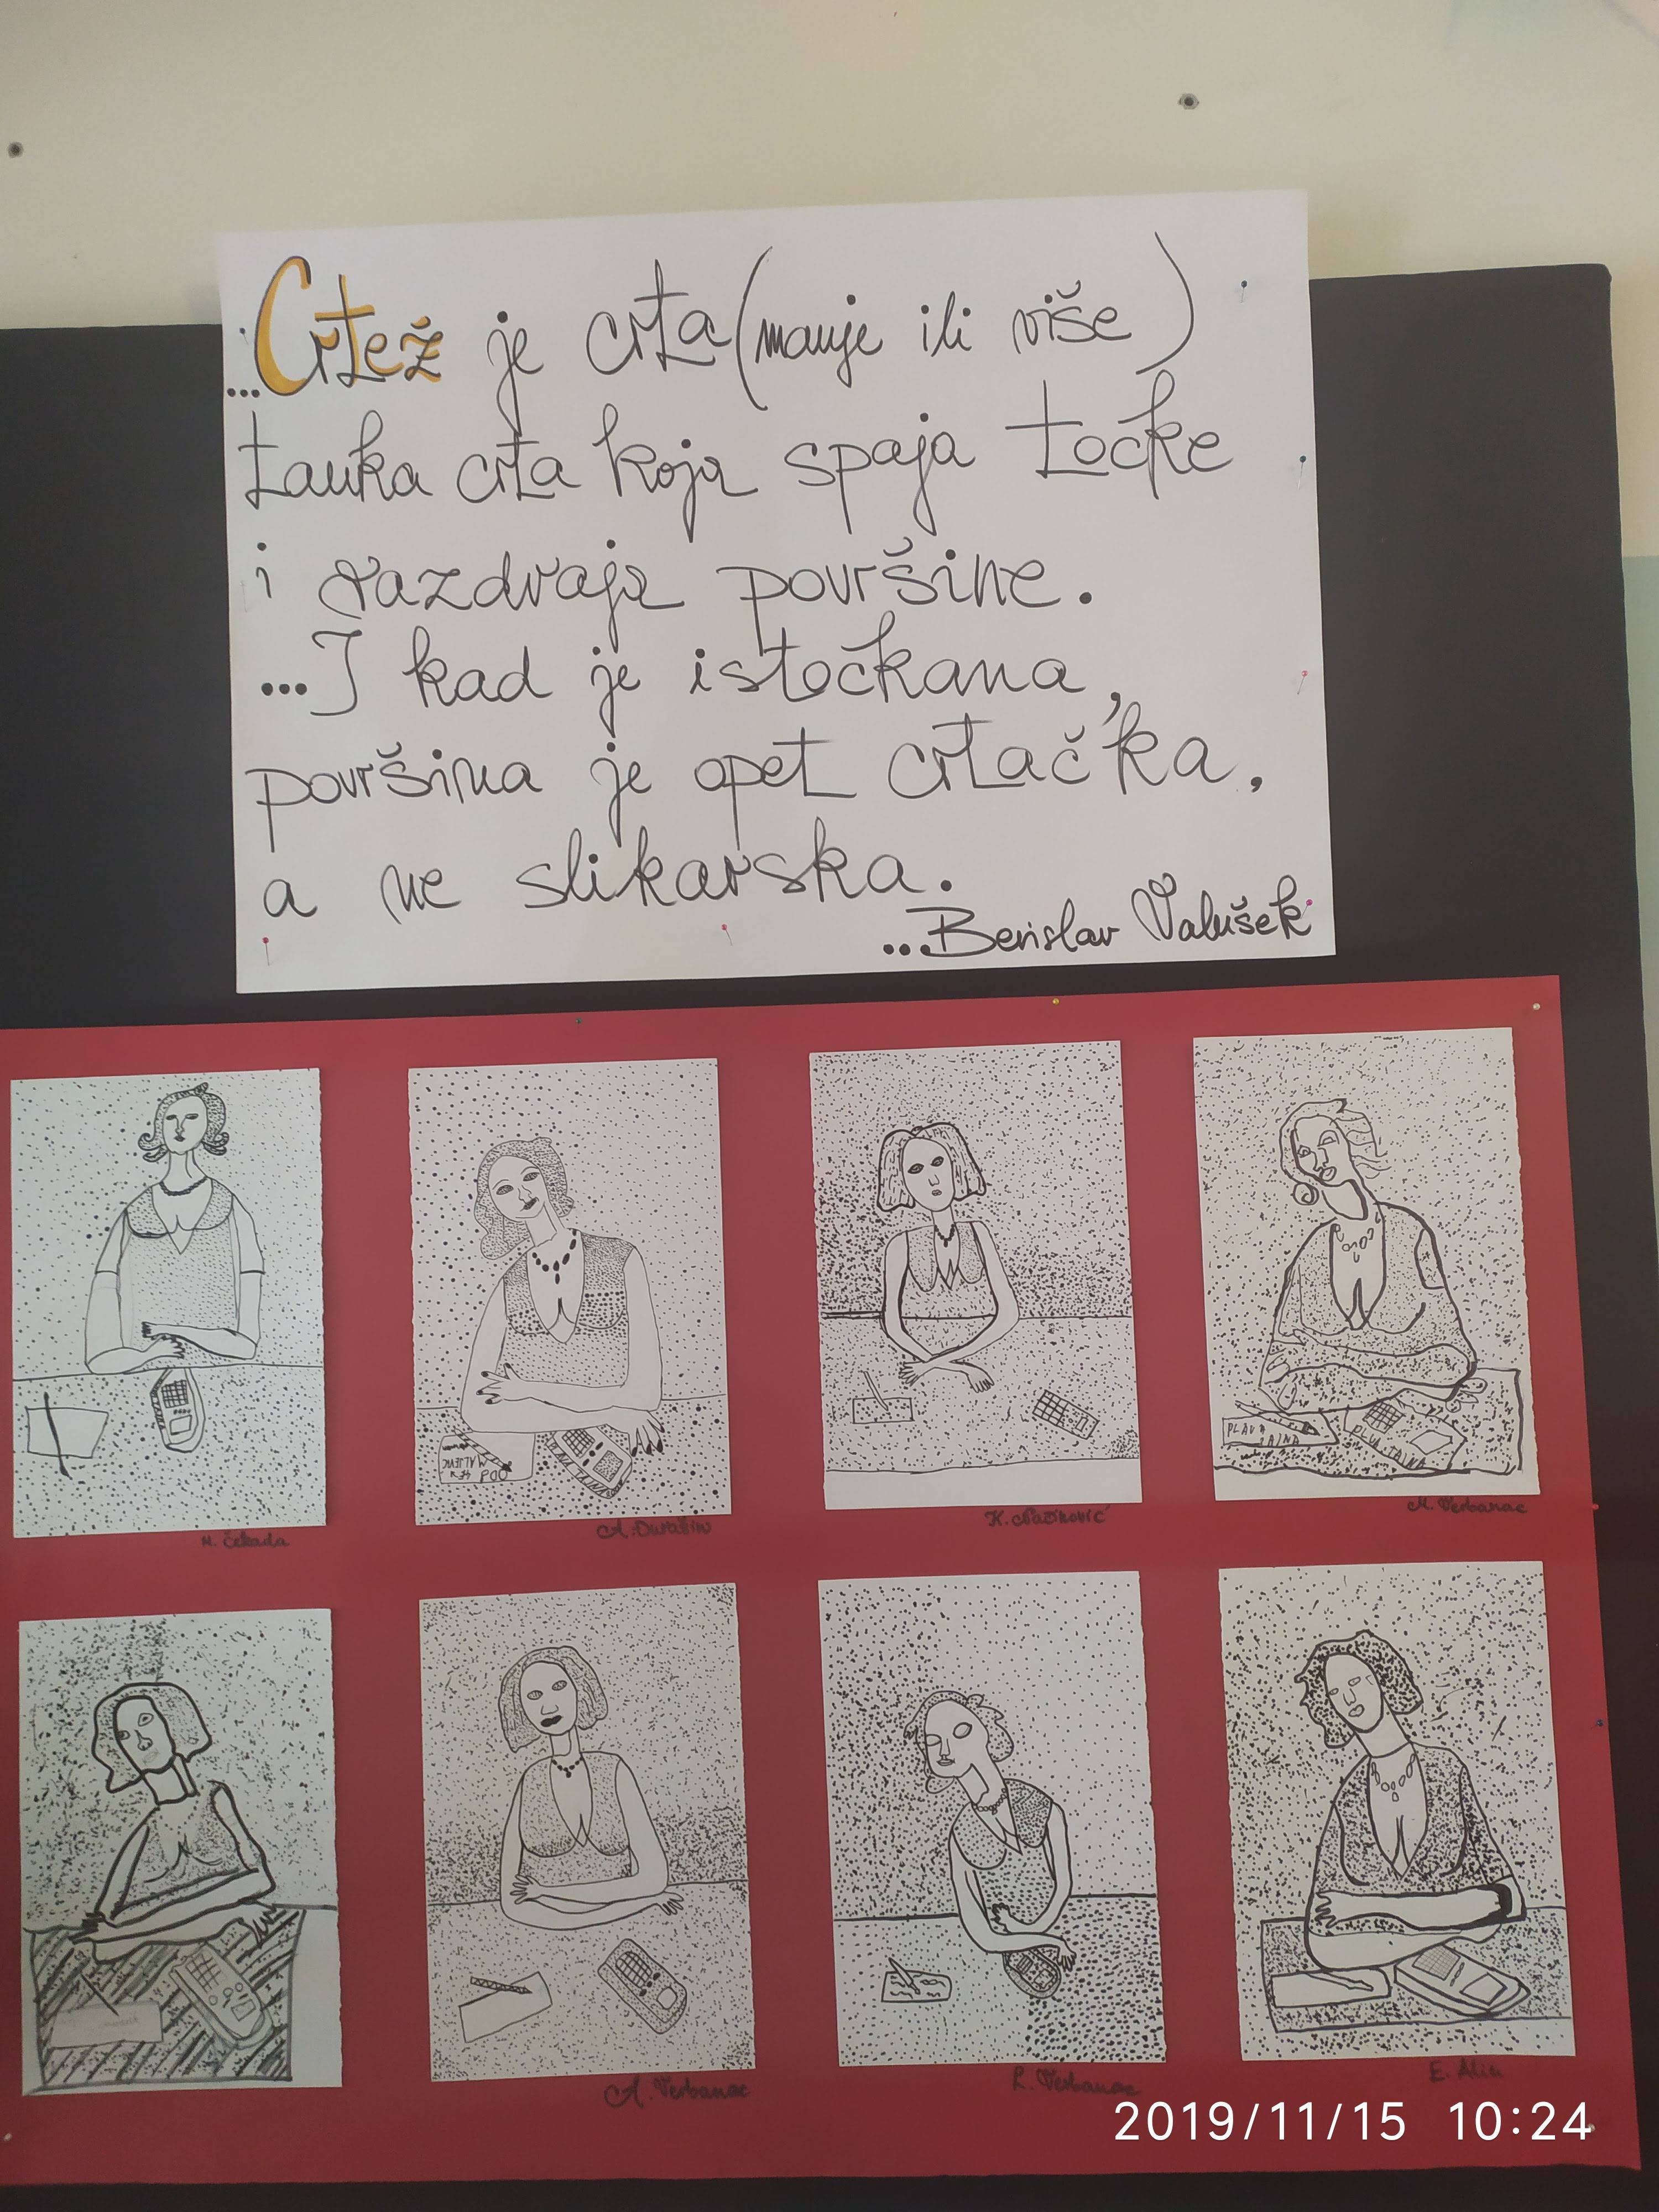 ...Crtež je crta (manje ili više)
tanka crta koja spaja točke
i razdvaja površine.
...I kad je istočkana,
površina je opet crtačka,
a ne slikarska.
...Berislav Valušek
PLAVA
TAJNA
N. Čekada
A. Duražin
M. Verbanac
A. Verbanac
R. Verbanac
2019/11/15 10:24